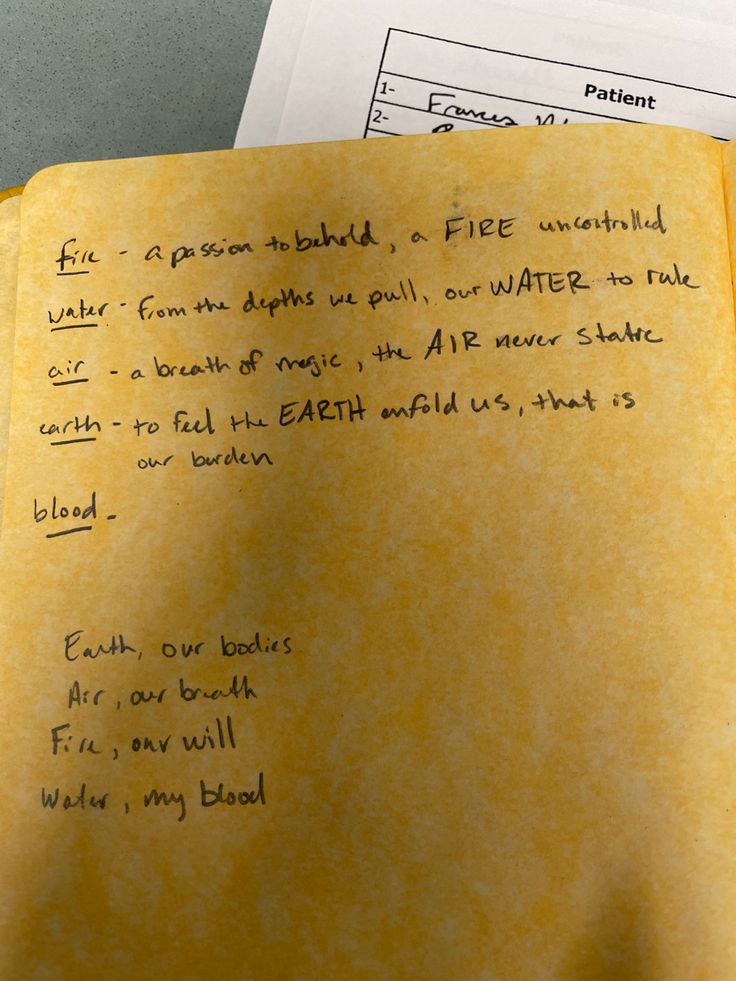 Patient
1- Frances
2-
fire - a passion to behold, a FIRE uncontrolled
water - from the depths we pull, our WATER to rule
air - a breath of magic, the AIR never static
earth - to feel the EARTH enfold us, that is
our burden
blood -
Earth, our bodies
Air, our breath
Fire, our will
Water, my blood